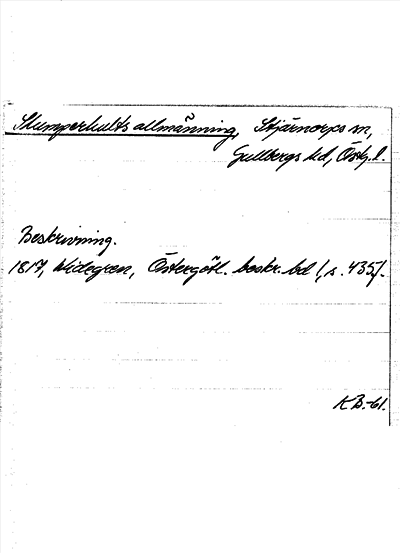 Skumperhults allmänning, Stjärnorps sn,
Gullbergs hd, Östg. l.
Beskrivning.
1817, Widegren, Östergötl. beskr. bd I, s. 435.
KB-61.